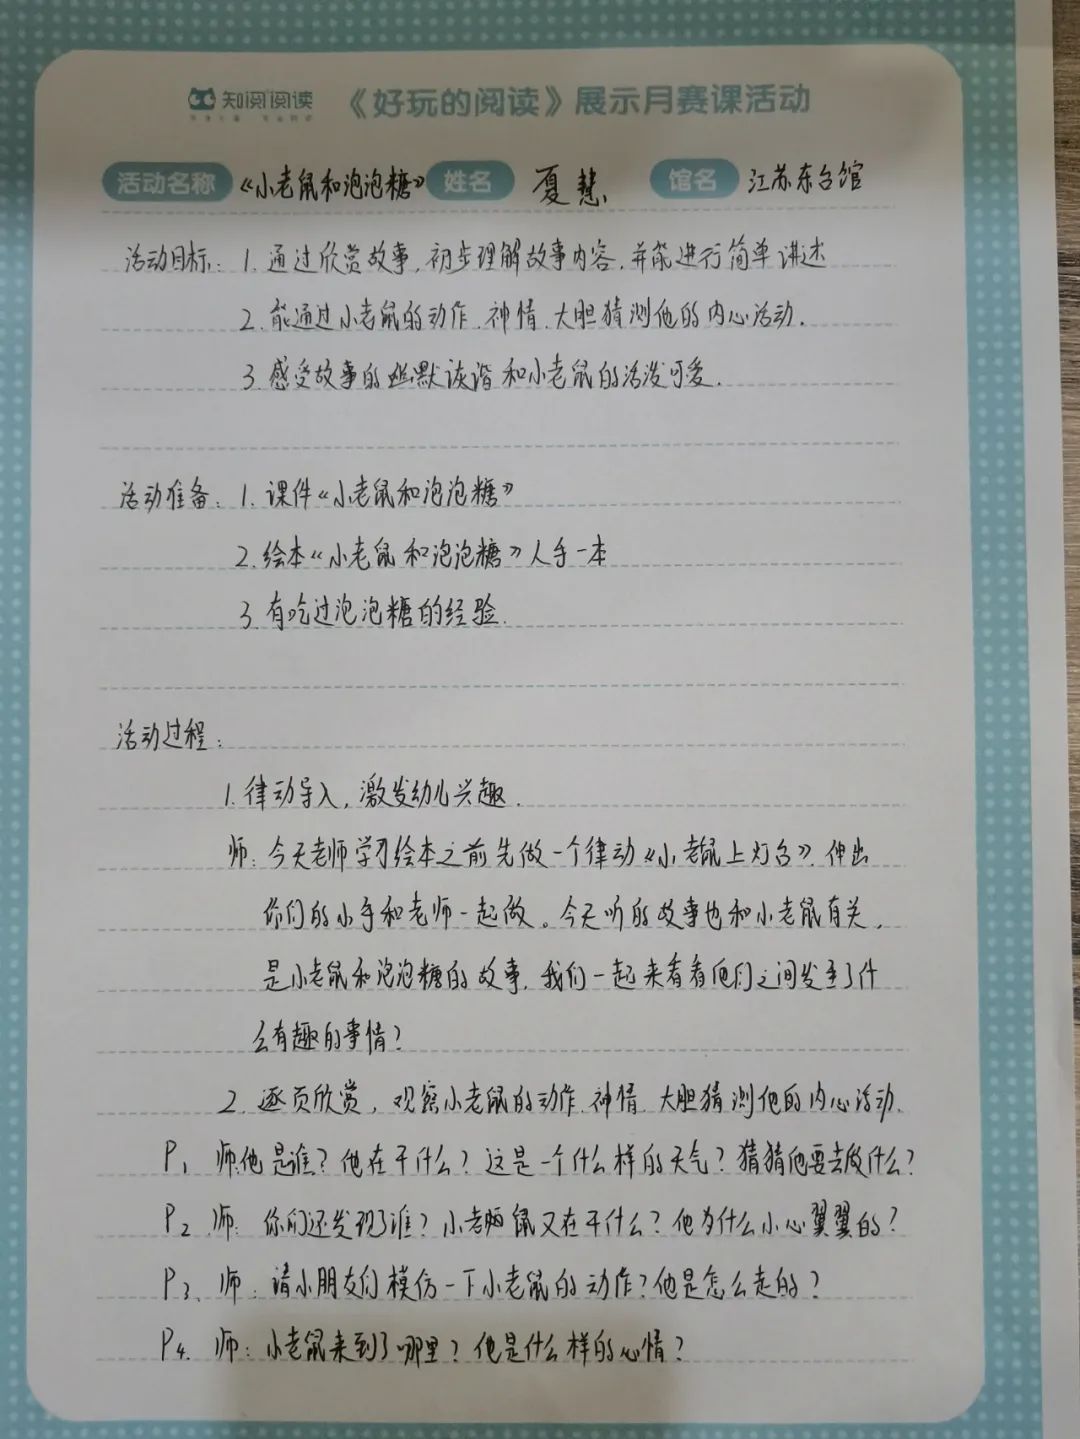 知阅阅读 《好玩的阅读》展示月赛课活动
活动名称 《小老鼠和泡泡糖》 姓名 夏慧 馆名 江苏东台馆
活动目标：1. 通过欣赏故事，初步理解故事内容，并能进行简单讲述
2. 能通过小老鼠的动作、神情、大胆猜测他的内心活动.
3. 感受故事的幽默诙谐和小老鼠的活泼可爱.
活动准备：1. 课件《小老鼠和泡泡糖》
2. 绘本《小老鼠和泡泡糖》人手一本
3. 有吃过泡泡糖的经验.
活动过程：
1. 律动导入，激发幼儿兴趣.
师：今天老师学习绘本之前先做一个律动《小老鼠上灯台》，伸出
你们的小手和老师一起做。今天听的故事也和小老鼠有关，
是小老鼠和泡泡糖的故事，我们一起来看看他们之间发生了什
么有趣的事情？
2. 逐页欣赏，观察小老鼠的动作、神情、大胆猜测他的内心活动.
P1 师：他是谁？他在干什么？这是一个什么样的天气？猜猜他要去做什么？
P2 师：你们还发现了谁？小老鼠又在干什么？他为什么小心翼翼的？
P3、师：请小朋友们模仿一下小老鼠的动作？他是怎么走的？
P4. 师：小老鼠来到了哪里？他是什么样的心情？